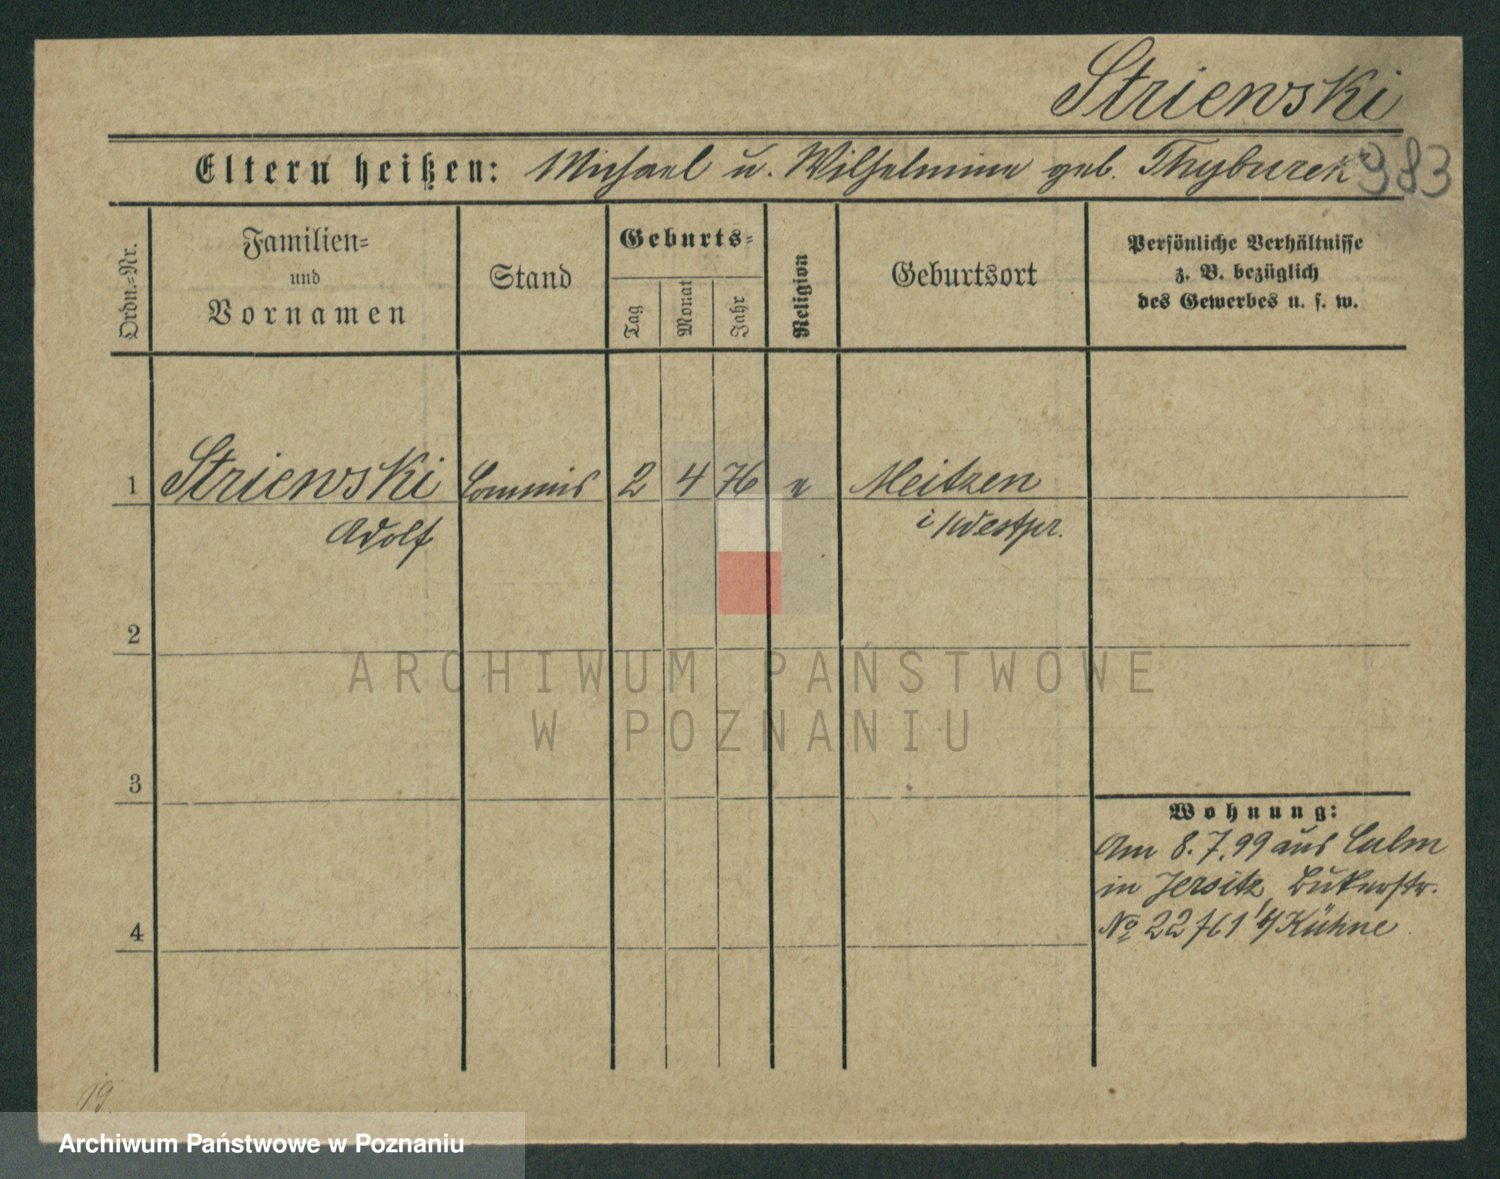 Striewski
Eltern heißen: Michael u. Wilhelmine geb. Thyburek 983
Ordn.-Nr.
Familien-
und
Vornamen
Stand
Geburts-
Tag
Monat
Jahr
Religion
Geburtsort
Persönliche Verhältnisse
z. B. bezüglich
des Gewerbes u. s. w.
1 Striewski Commis 2 4 76 Meitzen
Adolf i/Westpr.
2
ARCHIWUM PAŃSTWOWE
W POZNANIU
3
Wohnung:
Am 8.7.99 aus Culm
in Jersitz, Bukerstr.
4
No 22 b/Kühne
19.
Archiwum Państwowe w Poznaniu